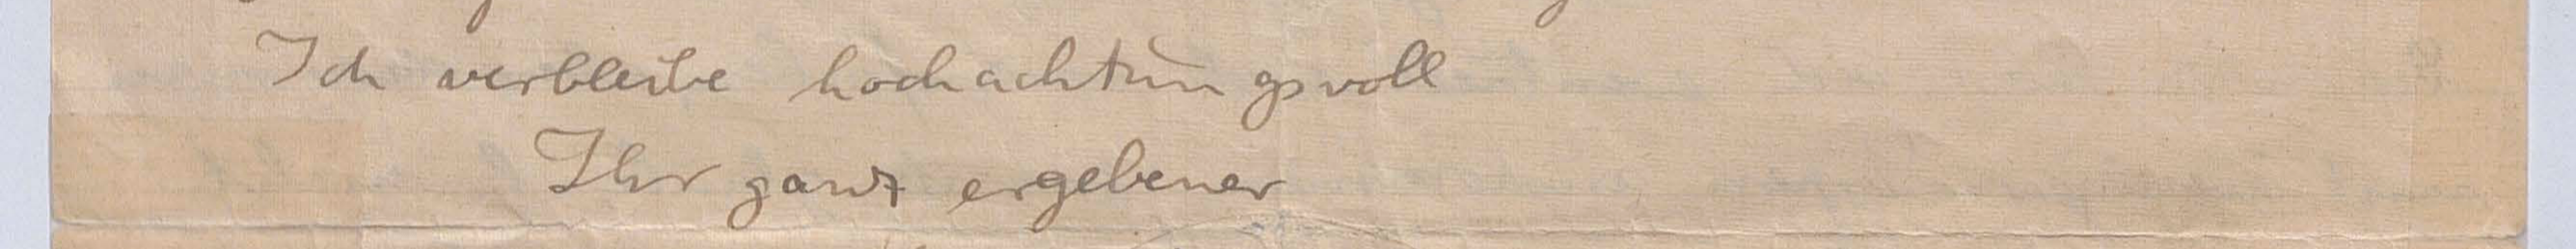 Ich verbleibe hochachtungsvoll
Ihr ganz ergebener